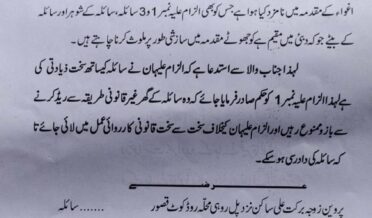 اغواء کے مقدمہ میں نامزد کیا ہوا ہے جس کو بھی الزام علیہ نمبر 1 و 3 سائلہ، سائلہ کے شوہر اور سائلہ کے
بیٹے جو کہ دبئی میں مقیم ہے کو جھوٹے مقدمہ میں سازشی طور پر ملوث کرنا چاہتے ہیں۔
لہذا جناب والا سے استدعا ہے کہ الزام علیہان نے سائلہ کیساتھ سخت ذیادتی کی
ہے لہذا الزام علیہ نمبر 1 کو حکم صادر فرمایا جائے کہ وہ سائلہ کے گھر غیر قانونی طریقہ سے ریڈ کرنے
سے باز و ممنوع رہیں اور الزام علیہان کیخلاف سخت سے سخت قانونی کارروائی عمل میں لائی جائے تا
کہ سائلہ کی دادرسی ہو سکے۔
عرضے
پروین زوجہ برکت علی ساکن نزد پل روہی محلہ روڈ کوٹ قصور ....... سائلہ